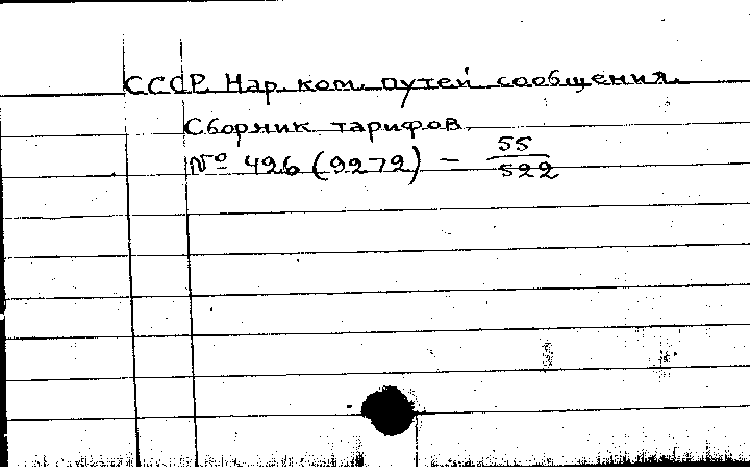 СССР. Нар. ком. путей сообщения.
Сборник тарифов.
№ 426 (9272) – 55/522